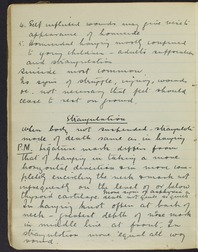 b. Self inflicted wounds may give misch
appearance of homicide
c. Homicidal hanging mostly confined
to young children – adults suffocation
and strangulation
Suicide most common
No signs of struggle, injury, wounds
or not necessary that feet should
cease to rest on ground.
Strangulation
When body not suspended – strangulation
mode of death same as in hanging.
P.M. ligature marks differ from
that of hanging in taking a more
horizontal direction are more comp-
letely encircling the neck & mark not
infrequently on the level of or below
thyroid cartilage.
In hanging knot often at back of
neck – greatest depth of noose mark
in middle line at front. In
strangulation more equal all way
round.